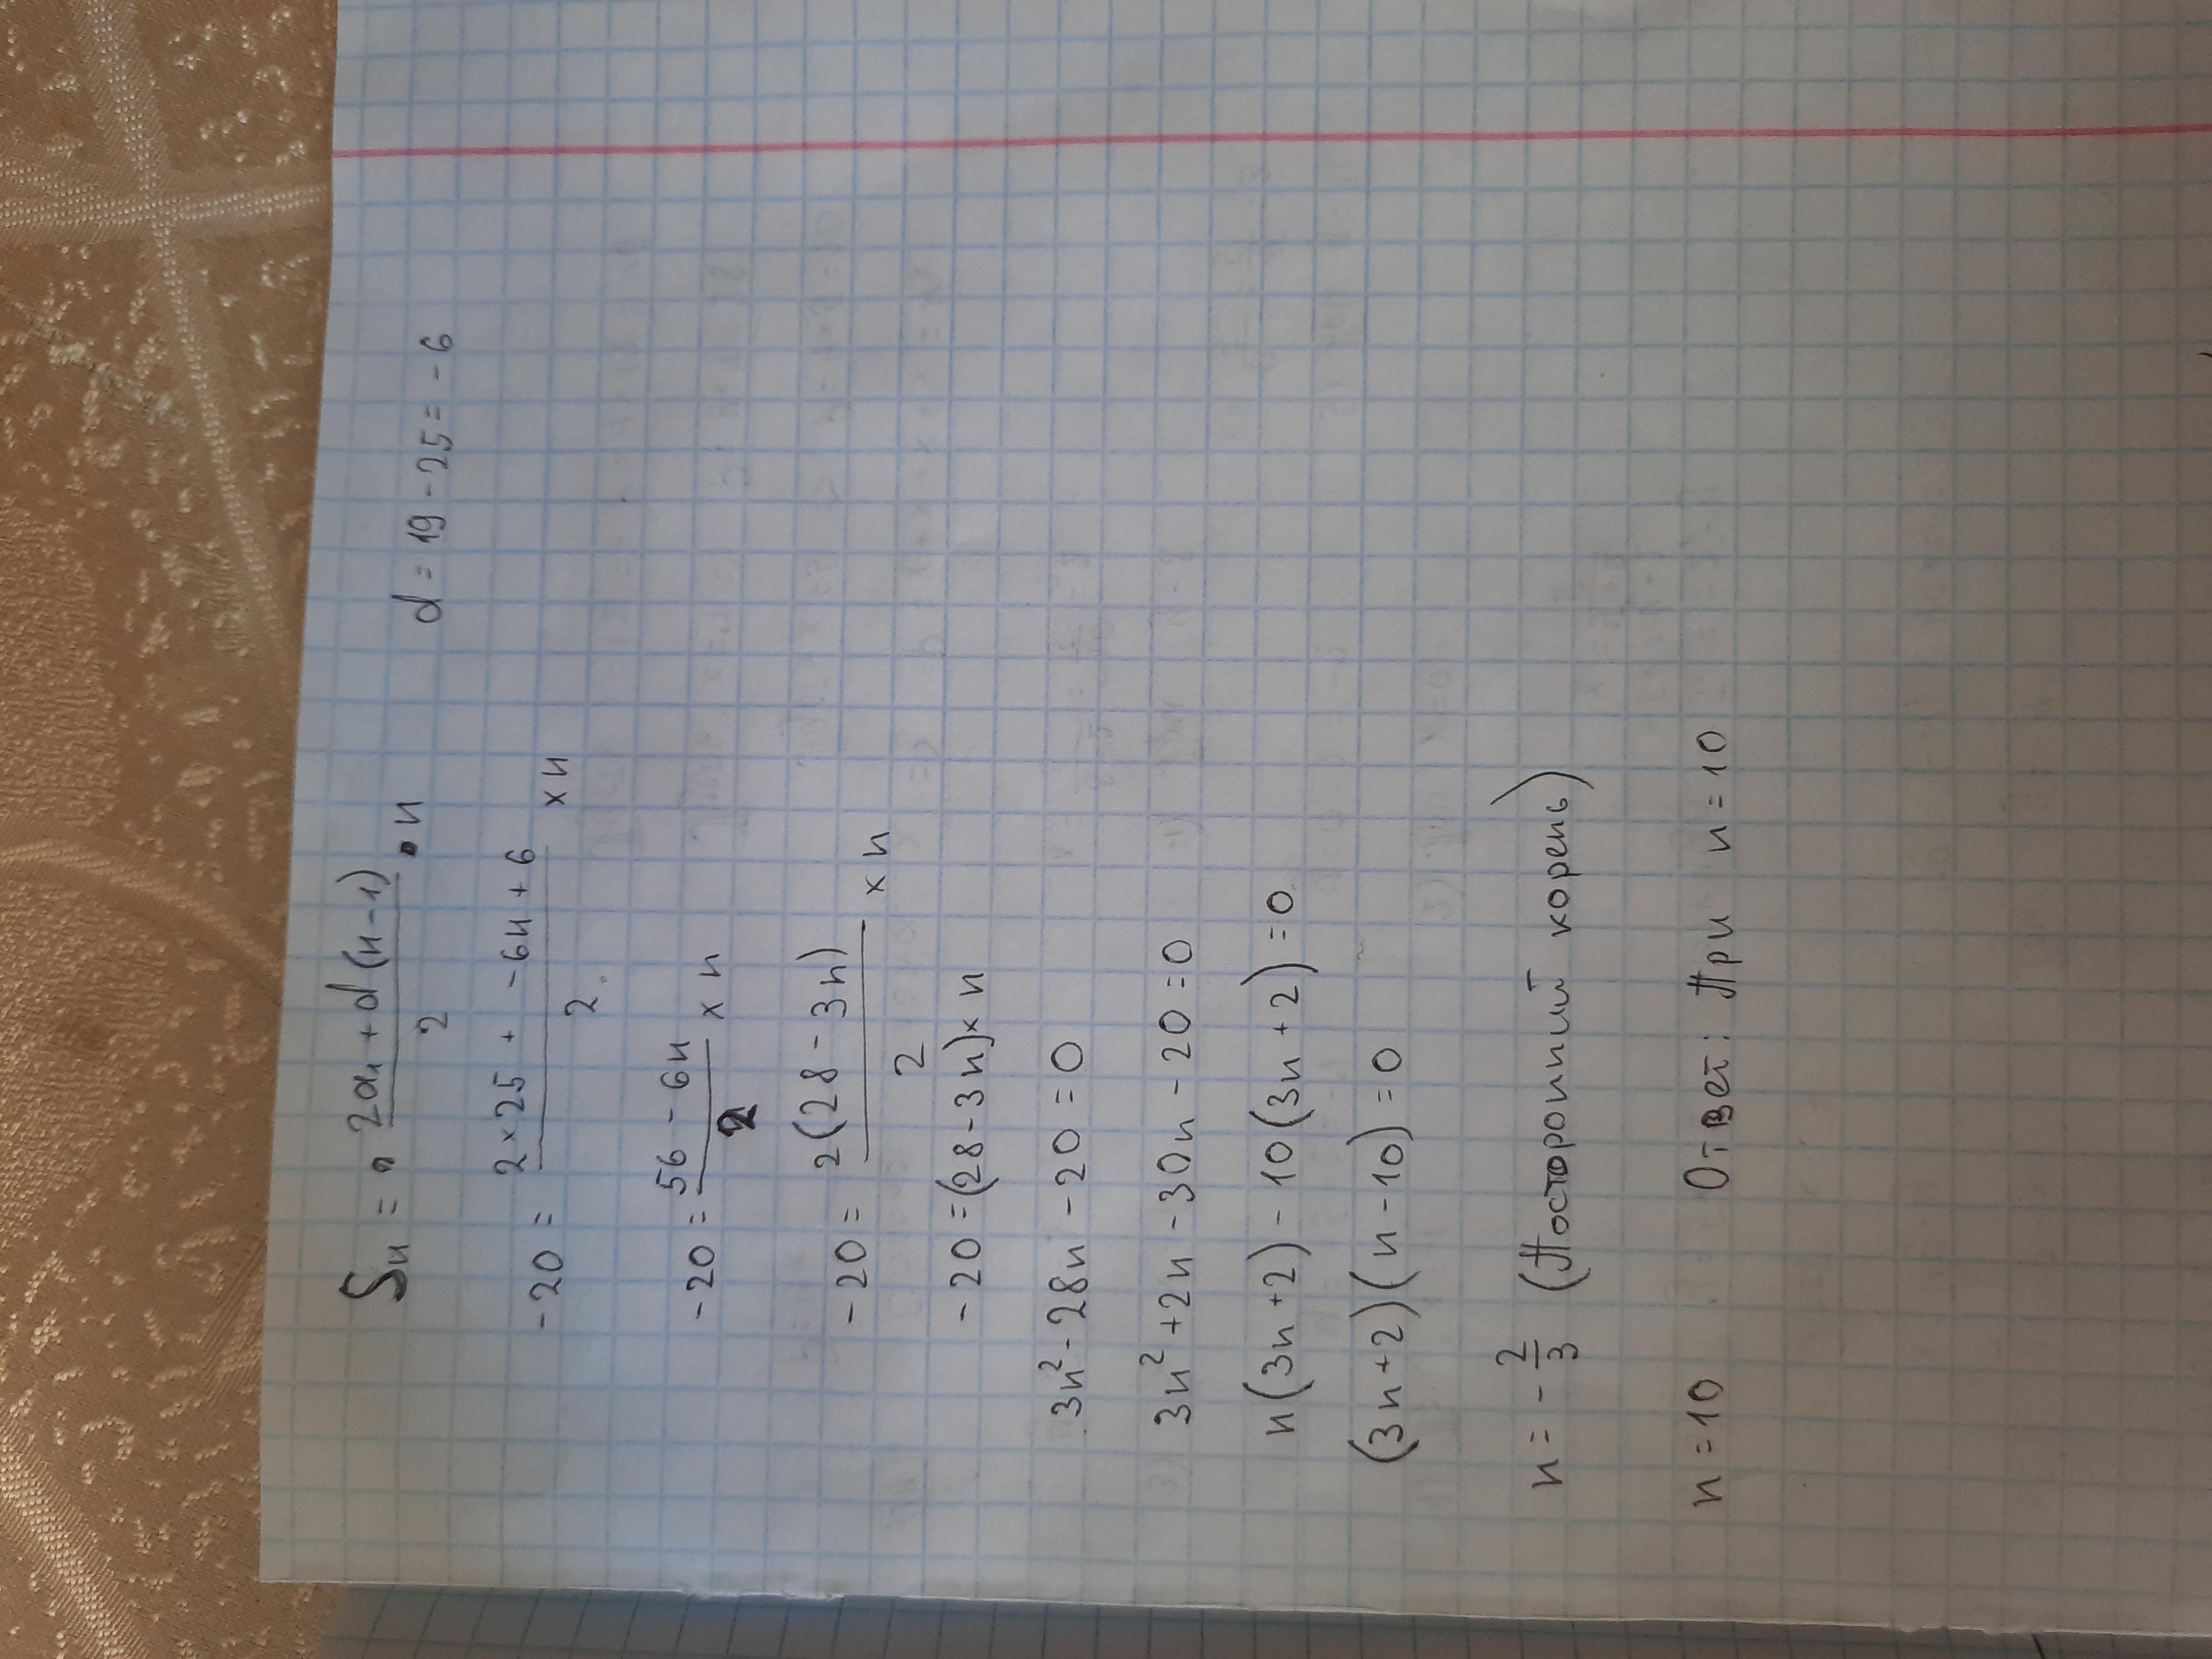 Sn = 2a₁ + d(n-1) / 2 · n
d = 19 - 25 = -6
-20 = 2×25 + -6n + 6 / 2 × n
-20 = 56 - 6n / 2 × n
-20 = 2(28 - 3n) / 2 × n
-20 = (28 - 3n) × n
3n² - 28n - 20 = 0
3n² + 2n - 30n - 20 = 0
n(3n + 2) - 10(3n + 2) = 0
(3n + 2)(n - 10) = 0
n = - 2/3 (Посторонний корень)
n = 10 Ответ: При n = 10